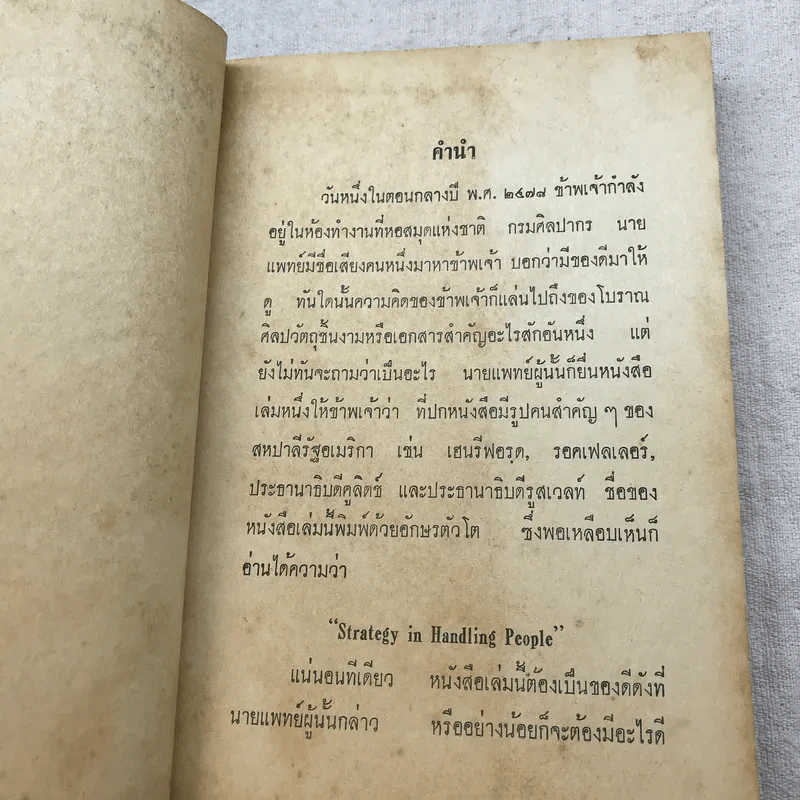 คำนำ
วันหนึ่งในตอนกลางปี พ.ศ. ๒๔๗๘ ข้าพเจ้ากำลัง
อยู่ในห้องทำงานที่หอสมุดแห่งชาติ กรมศิลปากร นาย
แพทย์มีชื่อเสียงคนหนึ่งมาหาข้าพเจ้า บอกว่ามีของดีมาให้
ดู ทันใดนั้นความคิดของข้าพเจ้าก็แล่นไปถึงของโบราณ
ศิลปวัตถุชิ้นงามหรือเอกสารสำคัญอะไรสักอันหนึ่ง แต่
ยังไม่ทันจะถามว่าเป็นอะไร นายแพทย์ผู้นั้นก็ยื่นหนังสือ
เล่มหนึ่งให้ข้าพเจ้าว่า ที่ปกหนังสือมีรูปคนสำคัญ ๆ ของ
สหปาลีรัฐอเมริกา เช่น เฮนรีฟอรฺด, รอคเฟลเลอร์,
ประธานาธิบดีคูลิตช์ และประธานาธิบดีรูสเวลท์ ชื่อของ
หนังสือเล่มนี้พิมพ์ด้วยอักษรตัวโต ซึ่งพอเหลือบเห็นก็
อ่านได้ความว่า
“Strategy in Handling People”
แน่นอนทีเดียว หนังสือเล่มนี้ต้องเป็นของดีดังที่
นายแพทย์ผู้นั้นกล่าว หรืออย่างน้อยก็จะต้องมีอะไรดี